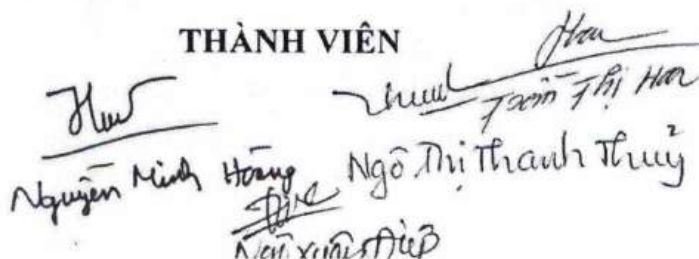 THÀNH VIÊN
Trần Thị Hoa
Nguyễn Minh Hoàng
Ngô Thị Thanh Thuỷ
Ngô Xuân Điệp